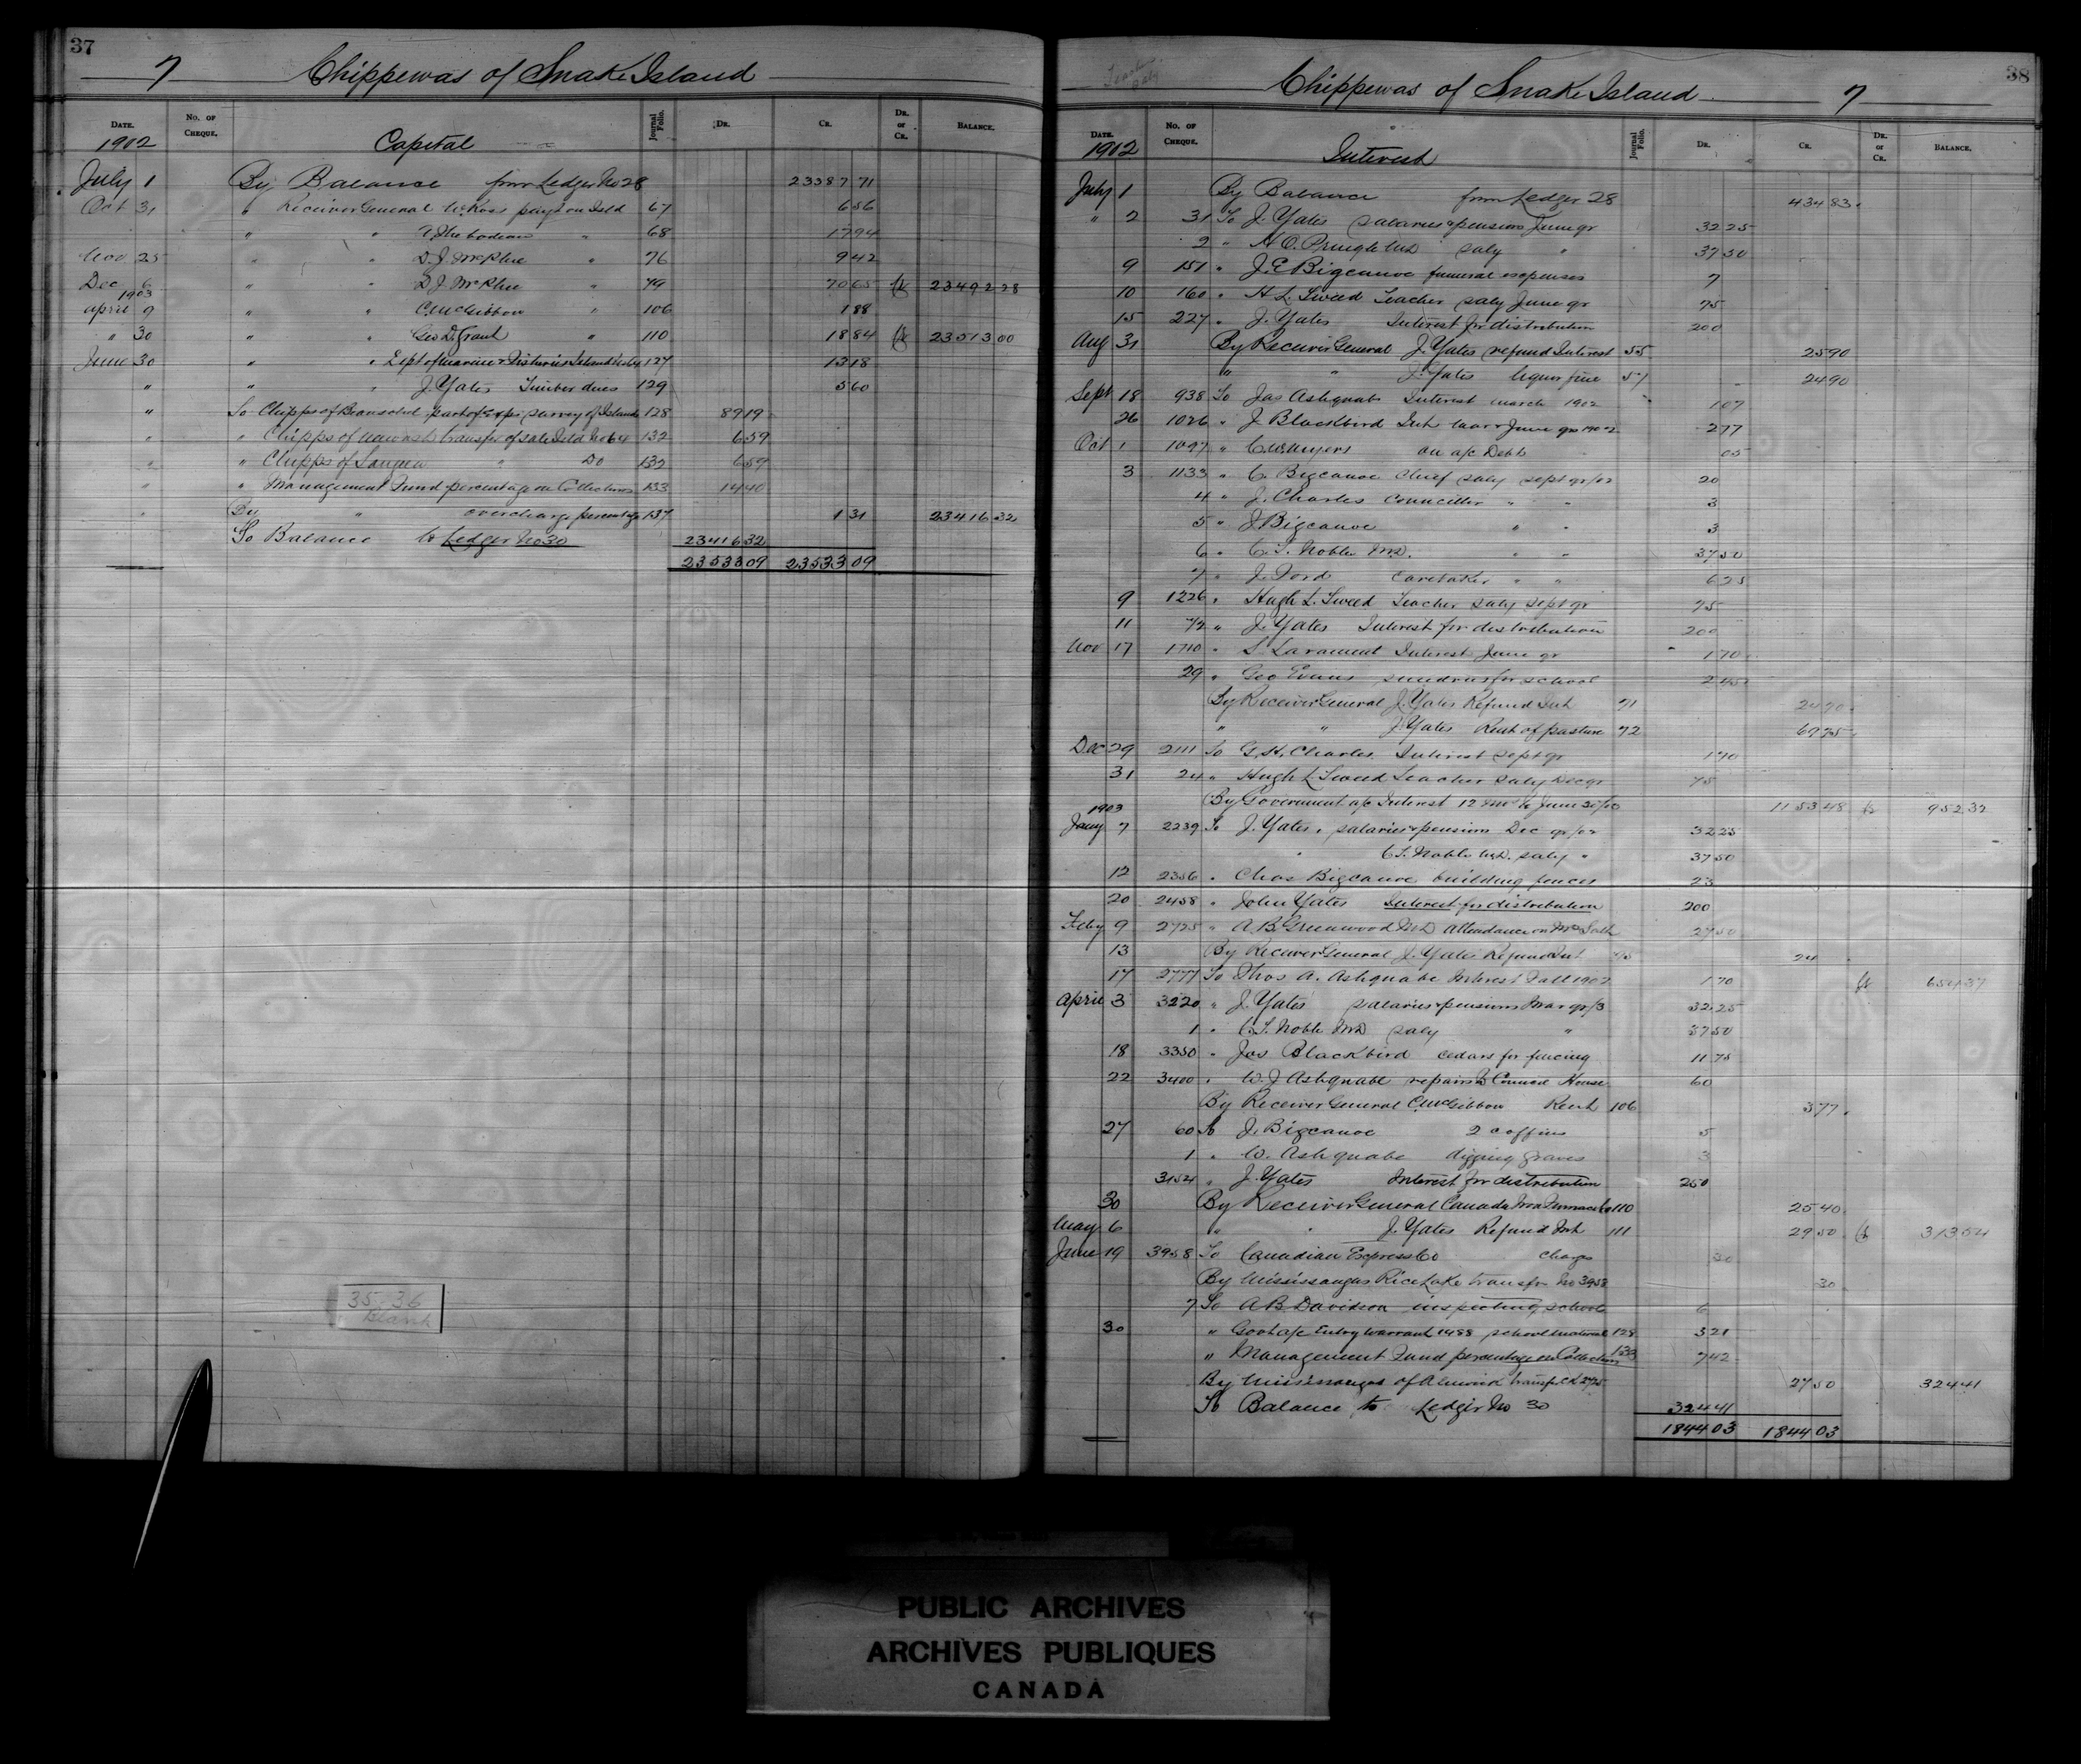 37
7 Chippewas of Snake Island
DATE. No. OF CHEQUE. Journal Folio. DR. CR. DR. or CR. BALANCE.
1902 Capital
July 1 By Balance from Ledger No 28 23387 71
Oct 31 " Receiver General W. Ross payt on Isld 67 6 56
" " " 68 17 94
Nov 25 " " D. J. McPhee " 76 9 42
Dec 6 " " D J. McPhee " 79 70 65 Cr 23492 28
1903
April 9 " " C. McGibbon " 106 1 88
" 30 " " Geo D. Grant " 110 18 84 Cr 23513 00
June 30 " " Dept of Marine & Fisheries 127 13 18
" " " J. Yates Timber dues 129 5 60
" To Chipps of Beausoleil part of exps survey of Islands 128 89 19
" " Chipps of Nawash transfer of sale Isld No 64 132 6 59
" " Chipps of Saugeen " Do 132 6 59
" " Management Fund percentage on Collections 133 14 40
" By " overcharge percentage 137 1 31 23416 32
To Balance to Ledger No 30 23416 32
23533 09 23533 09
35, 36
Blank
38
Chippewas of Snake Island 7
DATE. No. OF CHEQUE. Journal Folio. DR. CR. DR. or CR. BALANCE.
1902 Interest
July 1 By Balance from Ledger 28 434 83
" 2 31 To J. Yates salaries & pensions June qr 32 25
2 " H. C. Pringle M.D. saly " 37 50
9 151 " J. E Bigcanoe funeral expenses 7
10 160 " H L. Sweed Teacher saly June qr 75
15 227 " J. Yates Interest for distribution 200
Aug 31 By Receiver General J. Yates refund Interest 55 25 90
" " J. Yates liquor fine 57 24 90
Sept 18 938 To Jas Ashquabe Interest March 1902 1 07
26 1026 " J Blackbird Int. Mar & June qrs 1902 2 77
Oct 1 1097 " C. W. Myers on a/c Debt 05
3 1133 " C. Bigcanoe Chief saly sept qr/02 20
4 " J. Charles Councillor " " 3
5 " J. Bigcanoe " " 3
6 " C. T. Noble M.D. " " 37 50
7 " J. Ford Caretaker " " 6 25
9 1226 " Hugh L. Sweed Teacher saly sept qr 75
11 72 " J. Yates Interest for distribution 200
Nov 17 1710 " S. Interest June qr 1 70
29 " Geo Evans sundries for school 2 45
By Receiver General J. Yates Refund Int 71 24 70
" " J. Yates Rent of pasture 72 69 75
Dec 29 2111 To G. H. Charles Interest sept qr 1 70
31 24 " Hugh L Sweed Teacher saly Dec qr 75
By Government a/c Interest 12 mos to June 30/03 1153 48 Cr 952 32
1903
Jany 7 2239 To J. Yates, salaries & pensions Dec qr/02 32 25
" C. T. Noble M.D. saly " 37 50
12 2356 " Chas Bigcanoe building fences 23
20 2458 " John Yates Interest for distribution 200
Feby 9 2725 " A. B. Greenwood M.D attendance on Mrs 27 50
13 By Receiver General J. Yates Refund Int 24
17 2777 To Thos A. Ashquabe Interest Fall 1902 1 70 Cr 654 37
April 3 3220 " J. Yates salaries & pensions Mar qr/3 32 25
1 " C. T. Noble M.D. saly " 37 50
18 3350 " Jas Blackbird cedars for fencing 11 75
22 3400 " W. J Ashquabe repairs to Council House 60
By Receiver General C. McGibbon Rent 106 3 77
27 60 To J. Bigcanoe 2 coffins 5
1 " W. Ashquabe digging graves 3
3154 " J. Yates Interest for distribution 250
30 By Receiver General Canada Iron Furnace Co 110 25 40
May 6 " " J. Yates Refund Int 111 29 50 Cr 313 54
June 19 3958 To Canadian Express Co charges 30
By Mississaugas Rice Lake transfer No 3958 30
7 To A B Davidson inspecting schools 6
30 " Govt a/c Entry Warrant 1488 school material 128 3 21
" Management Fund percentage on Collections 133 7 42
By Mississaugas of Alnwick transf. ck 2725 27 50 324 41
To Balance to Ledger No 30 324 41
1844 03 1844 03
PUBLIC ARCHIVES
ARCHIVES PUBLIQUES
CANADA